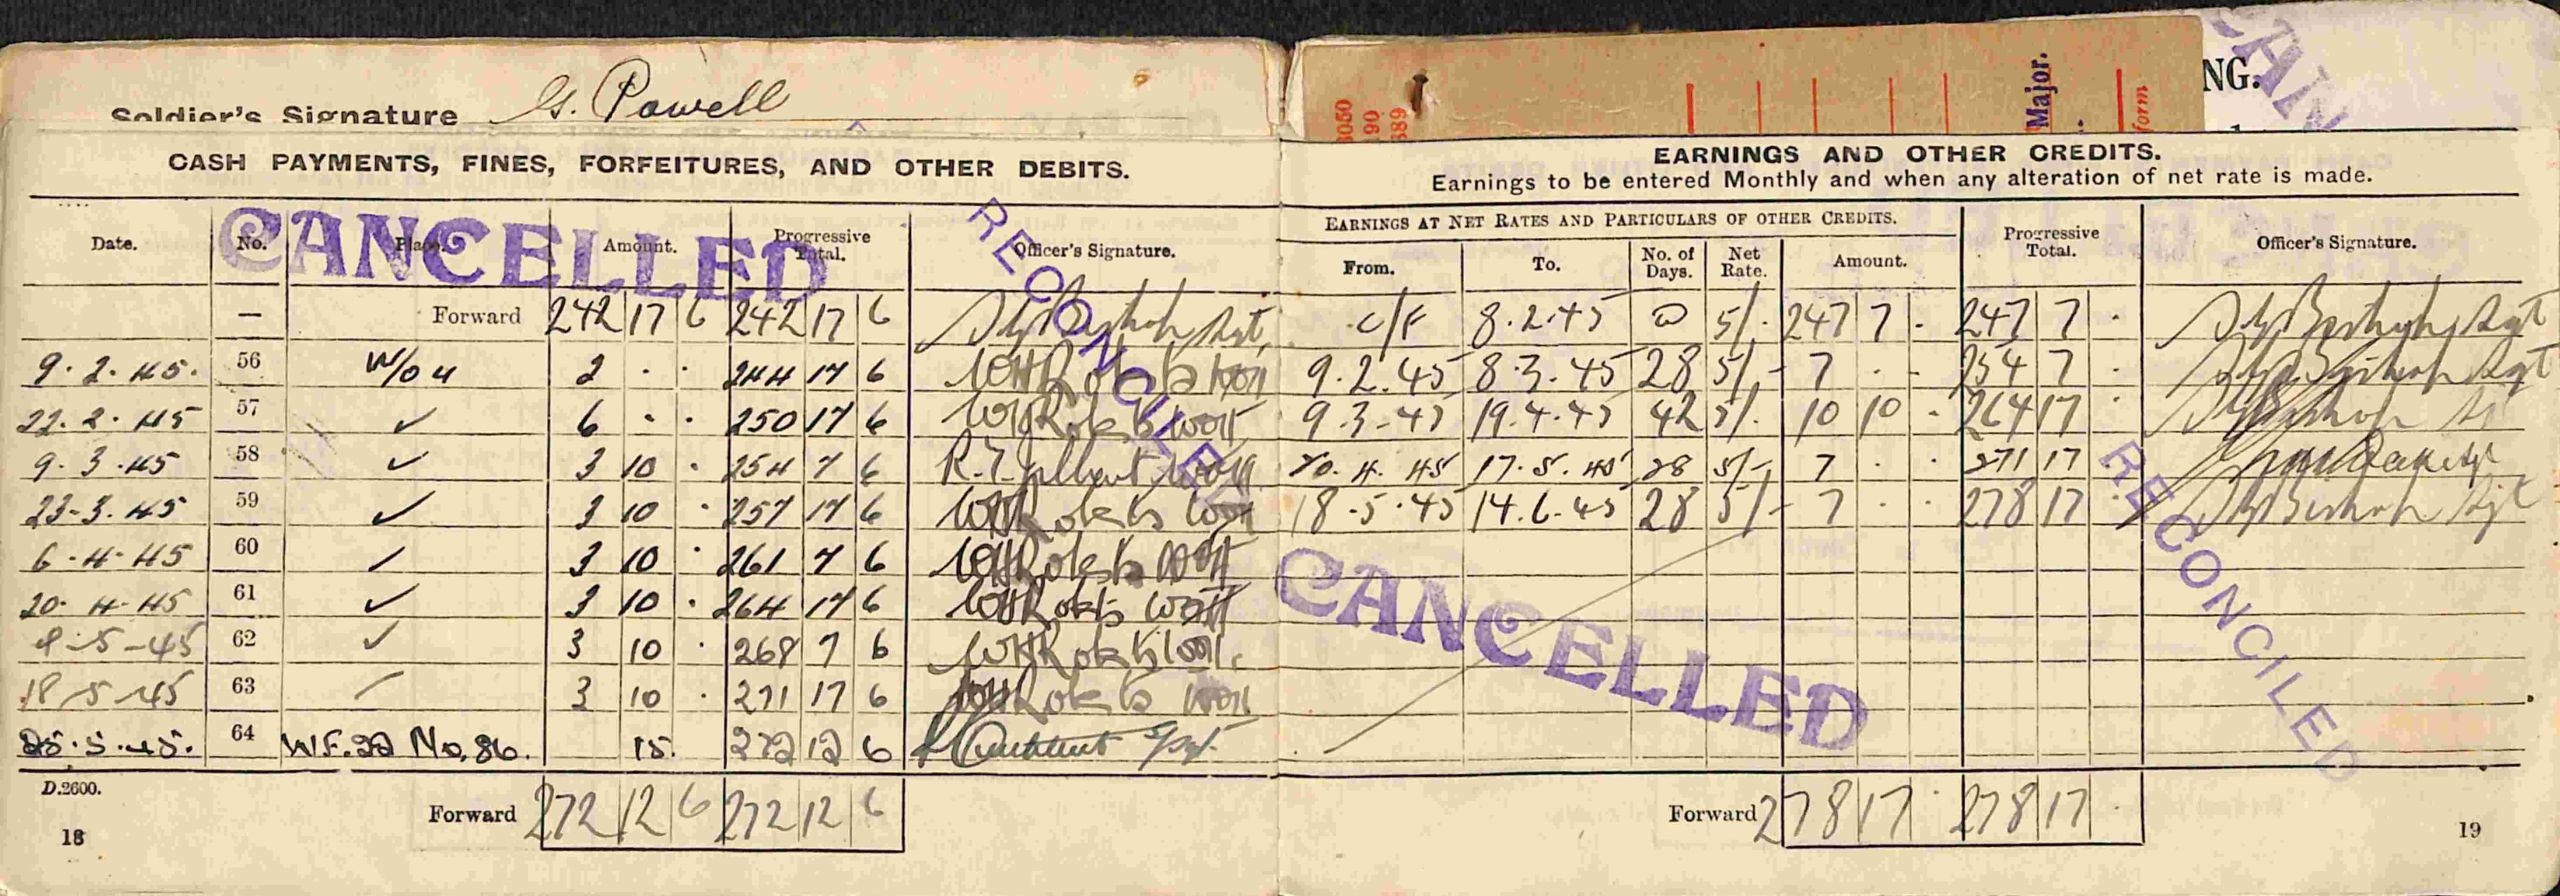 Soldier's Signature G. Powell
CASH PAYMENTS, FINES, FORFEITURES, AND OTHER DEBITS.
Date. No. Place. Amount. Progressive Total. Officer's Signature.
CANCELLED
RECONCILED
— Forward 242 17 6 242 17 6
9.2.45. 56 W/O 4 2 . . 244 17 6
22.2.45 57 ✓ 6 . . 250 17 6
9.3.45 58 ✓ 3 10 . 254 7 6
23-3.45 59 ✓ 3 10 . 257 17 6
6-4-45 60 ✓ 3 10 . 261 7 6
20-4-45 61 ✓ 3 10 . 264 17 6
4-5-45 62 ✓ 3 10 . 268 7 6
18-5-45 63 ✓ 3 10 . 271 17 6
25.5.45. 64 W.F.22 No.86. 15. 272 12 6
D.2600.
Forward 272 12 6 272 12 6
18
3050
90
389
Major.
form
NG.
CAN
EARNINGS AND OTHER CREDITS.
Earnings to be entered Monthly and when any alteration of net rate is made.
EARNINGS AT NET RATES AND PARTICULARS OF OTHER CREDITS. Progressive Total. Officer's Signature.
From. To. No. of Days. Net Rate. Amount.
C/F 8.2.45 @ 5/- 247 7 - 247 7 .
9.2.45 8.3.45 28 5/- 7 . - 254 7 .
9.3-45 19.4.45 42 5/- 10 10 - 264 17 .
20.4.45 17.5.45 28 5/- 7 . . 271 17 .
18.5.45 14.6.45 28 5/- 7 . . 278 17 .
CANCELLED
RECONCILED
Forward 278 17 . 278 17 .
19